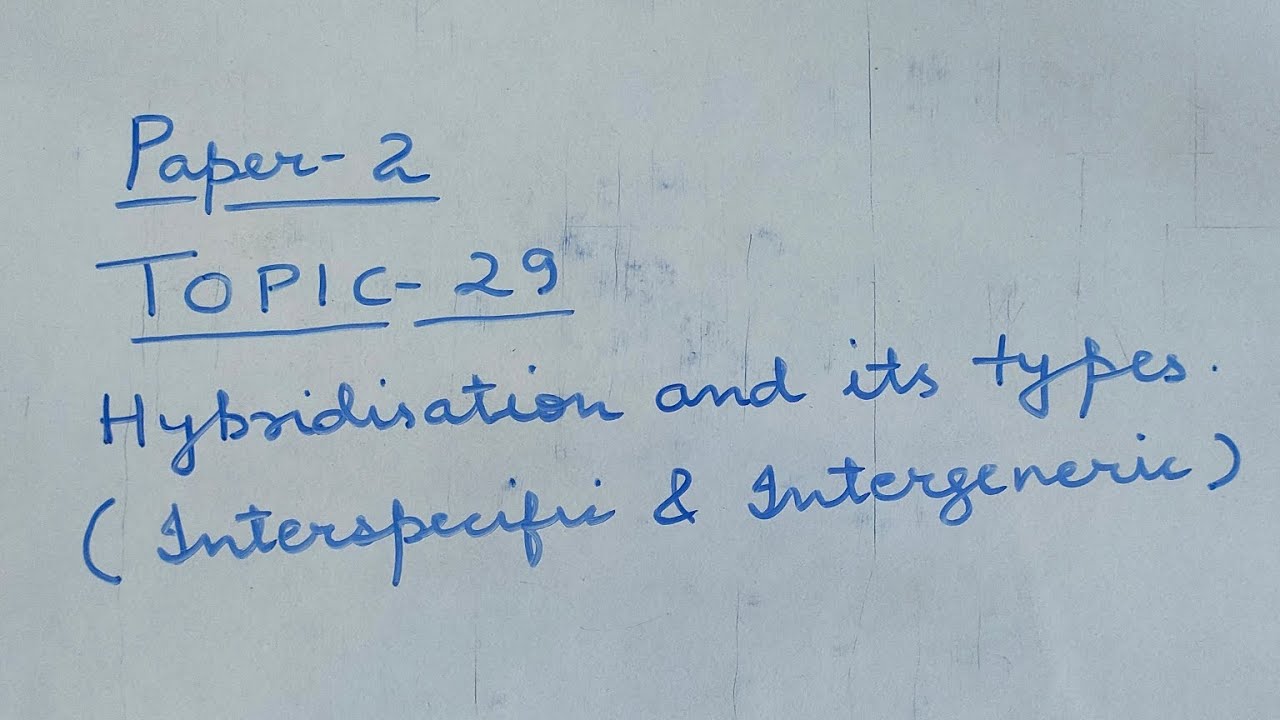 Paper-2
TOPIC-29
Hybridisation and its types.
(Interspecific & Intergeneric)